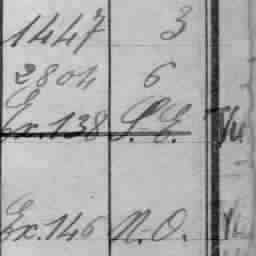 1447 3
2804 6
Ex. 138 S.E.
Ex. 146 N.O.